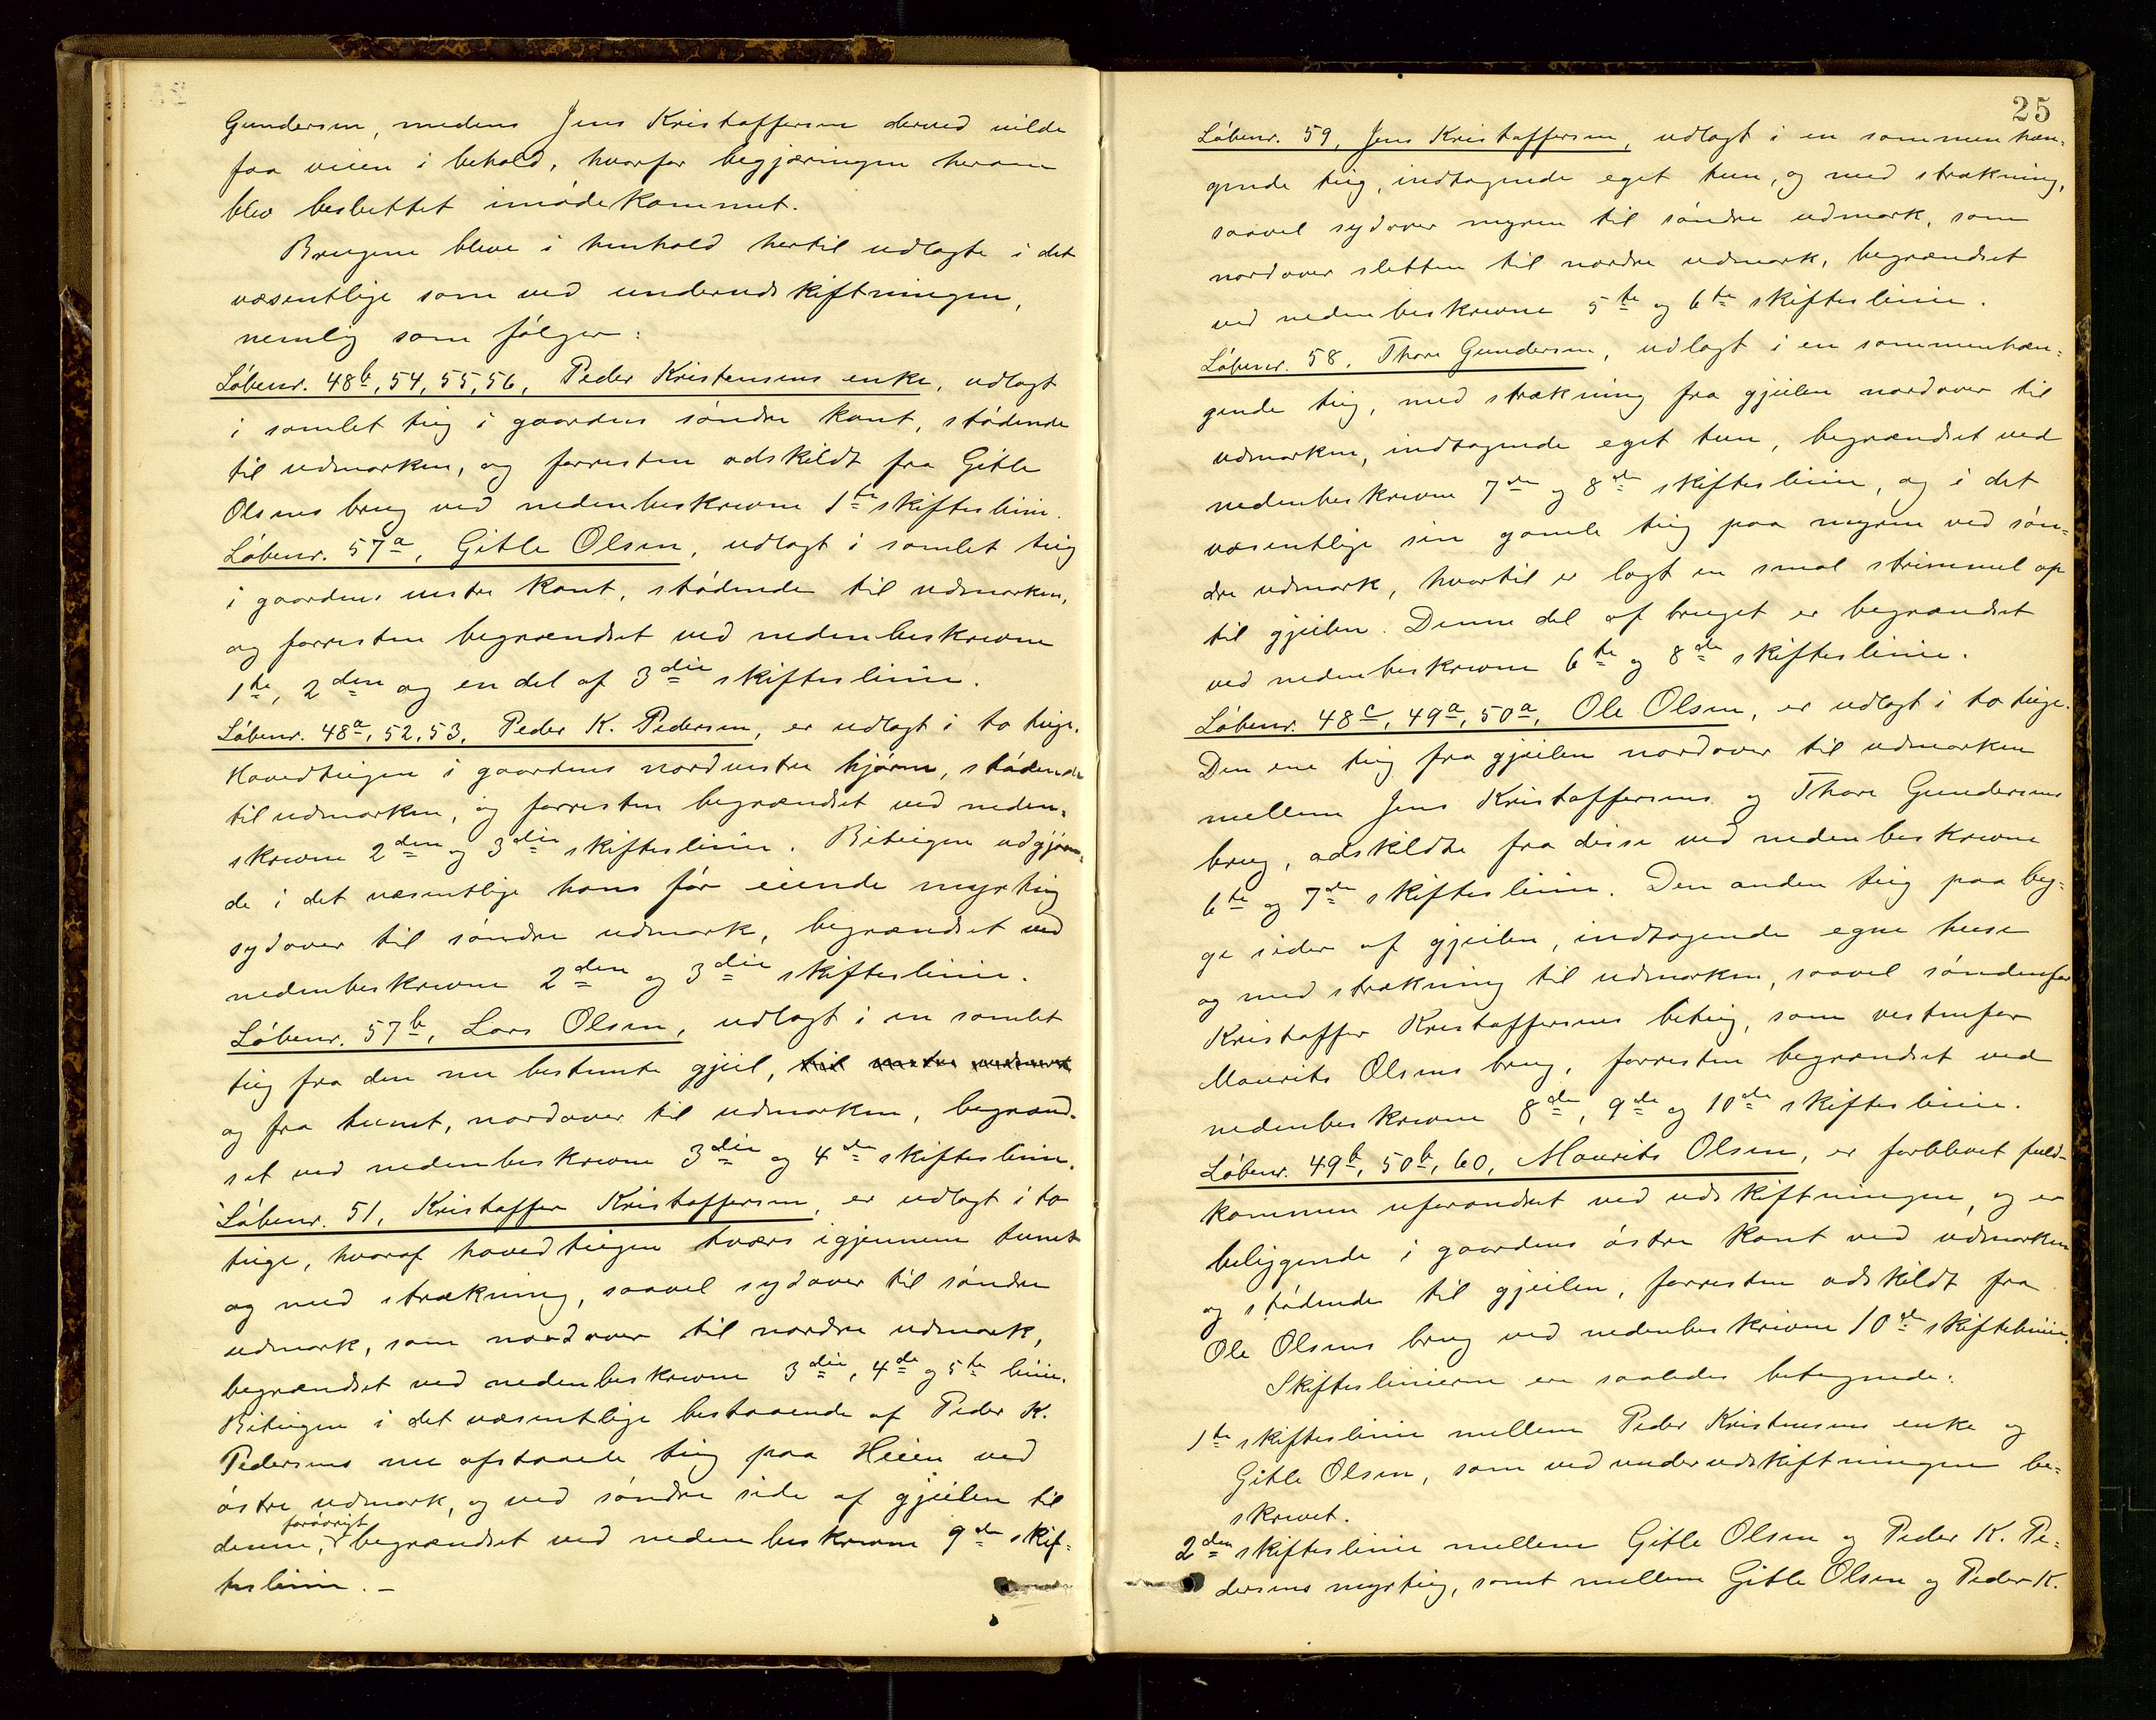 Gundersen, medens Jens Kristoffersen derved vilde
faa veien i behold, hvorfor begjæringen herom
blev besluttet imødekommet.
Brugene bleve i henhold hertil udlagte i det
væsentlige som ved underudskiftningen,
nemlig som følger:
Løbenr. 48b, 54, 55, 56, Peder Kristensens enke, udlagt
i samlet teig i gaardens søndre kant, stødende
til udmarken, og forresten adskildt fra Gitle
Olsens brug ved nedenbeskrevne 1te skifteslinie.
Løbenr. 57a, Gitle Olsen, udlagt i samlet teig
i gaardens vestre kant, stødende til udmarken,
og forresten begrændset ved nedenbeskrevne
1te, 2den og en del af 3die skifteslinie.
Løbenr. 48a, 52, 53, Peder K. Pedersen, er udlagt i to teige.
Hovedteigen i gaardens nordvestre hjørne, stødende
til udmarken, og forresten begrændset ved neden-
skrevne 2den og 3die skifteslinie. Biteigen udgjøren-
de i det væsentlige hans før eiende myrteig
sydover til søndre udmark, begrændset ved
nedenbeskrevne 2den og 3die skifteslinie.
Løbenr. 57b, Lars Olsen, udlagt i en samlet
teig fra den nu bestemte gjeil, til vestre udmark
og fra tunet, nordover til udmarken, begrænd-
set ved nedenbeskrevne 3die og 4de skifteslinie.
Løbenr. 51, Kristoffer Kristoffersen, er udlagt i to
teige, hvoraf hovedteigen tværs igjennem tunet
og med strækning, saavel sydover til søndre
udmark, som nordover til nordre udmark,
begrændset ved nedenbeskrevne 3die, 4de og 5te linie.
Biteigen i det væsentlige bestaaende af Peder K.
Pedersens nu afstaaede teig paa Heien ved
østre udmark, og ved søndre side af gjeilen til
forøvrigt
denne, begrændset ved nedenbeskrevne 9de skif-
teslinie. –
25
Løbenr. 59, Jens Kristoffersen, udlagt i en sammenhæn-
gende teig, indtagende eget tun, og med strækning,
saavel sydover myren til søndre udmark, som
nordover sletten til nordre udmark, begrændset
ved nedenbeskrevne 5te og 6te skifteslinie.
Løbenr. 58, Thore Gundersen, udlagt i en sammenhæn-
gende teig, med strækning fra gjeilen nordover til
udmarken, indtagende eget tun, begrændset ved
nedenbeskrevne 7de og 8de skifteslinie, og i det
væsentlige sin gamle teig paa myren ved søn-
dre udmark, hvortil er lagt en smal strimmel op
til gjeilen. Denne del af bruget er begrændset
ved nedenbeskrevne 6te og 8de skifteslinie.
Løbenr. 48c, 49a, 50a, Ole Olsen, er udlagt i to teige.
Den ene teig fra gjeilen nordover til udmarken
mellem Jens Kristoffersens og Thore Gundersens
brug, adskildte fra disse ved nedenbeskrevne
6te og 7de skifteslinie. Den anden teig paa beg-
ge sider af gjeilen, indtagende egne huse
og med strækning til udmarken, saavel søndenfor
Kristoffer Kristoffersens biteig, som vestenfor
Maurits Olsens brug, forresten begrændset ved
nedenbeskrevne 8de, 9de og 10de skifteslinie.
Løbenr. 49b, 50b, 60, Maurits Olsen, er forblevet fuld-
kommen uforandret ved udskiftningen, og er
beliggende i gaardens østre kant ved udmarken
og stødende til gjeilen, forresten adskildt fra
Ole Olsens brug ved nedenbeskrevne 10de skifteslinie.
Skifteslinierne ere saaledes betegnede:
1te skifteslinie mellem Peder Kristensens enke og
Gitle Olsen, som ved underudskiftningen be-
skrevet.
2den skifteslinie mellem Gitle Olsen og Peder K. Pe-
dersens myrteig, samt mellem Gitle Olsen og Peder K.